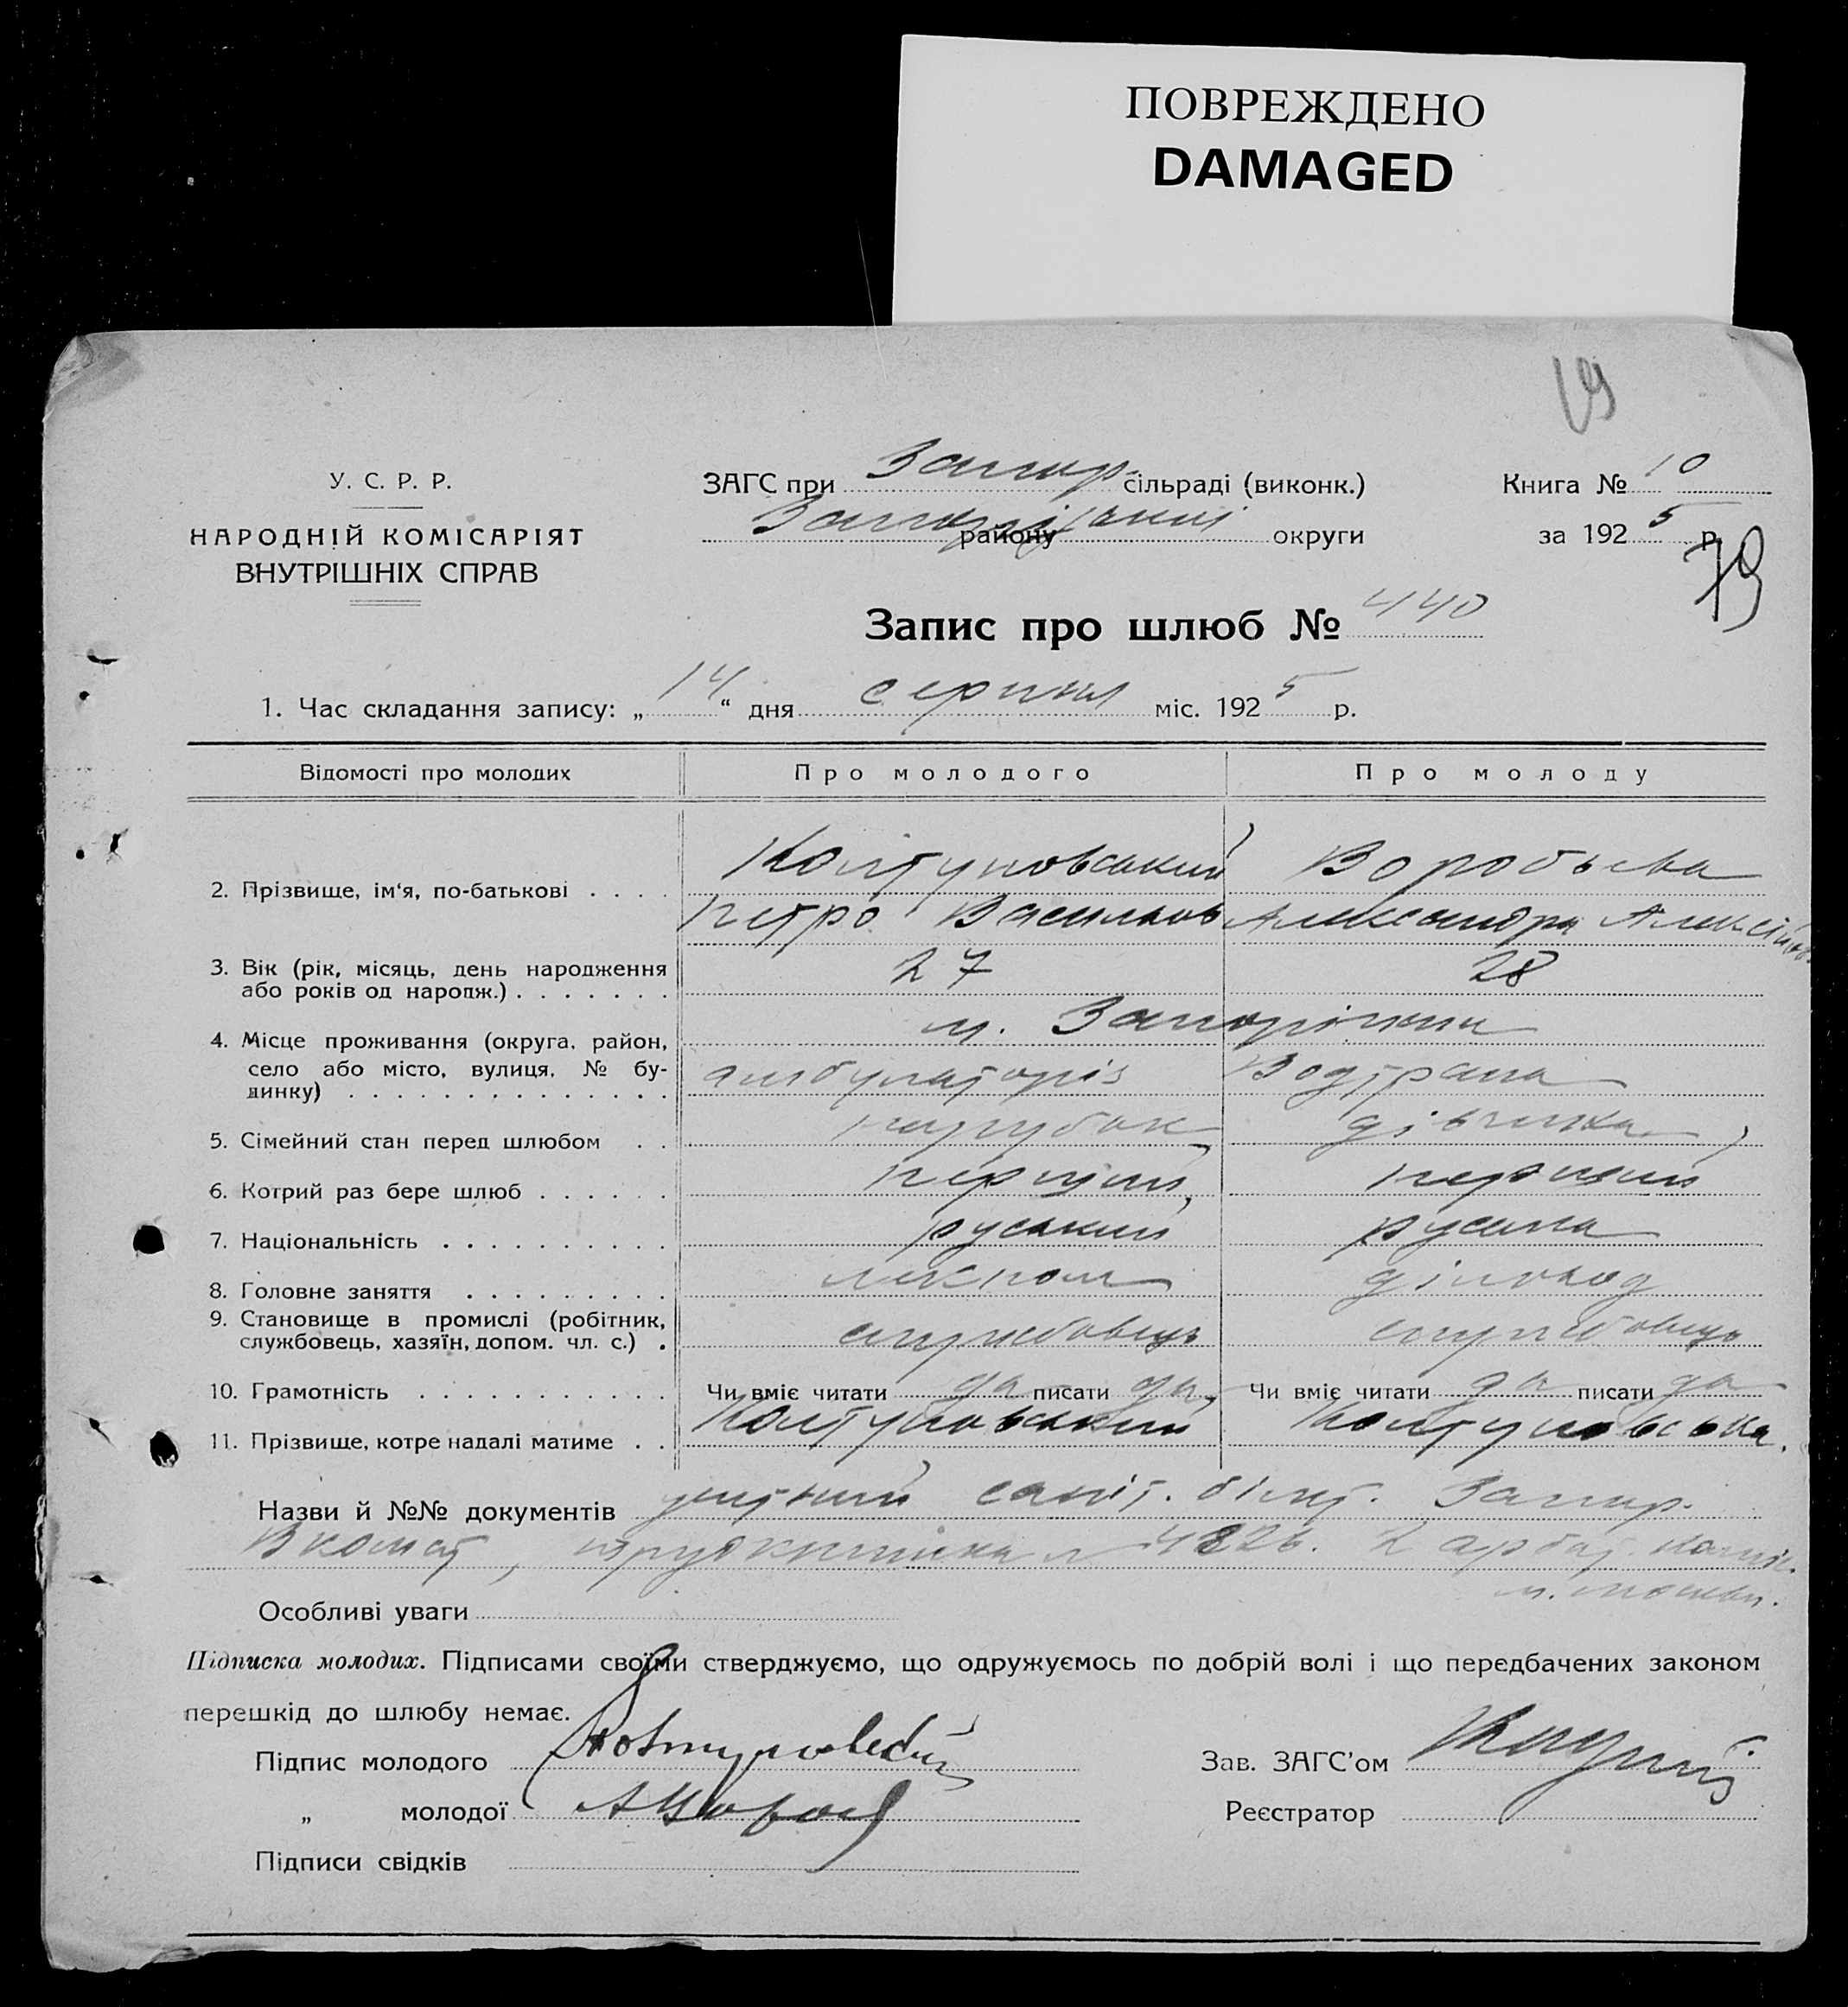 ПОВРЕЖДЕНО
DAMAGED
У. С. Р. Р.
НАРОДНІЙ КОМІСАРІЯТ
ВНУТРІШНІХ СПРАВ
ЗАГС при Запор сільраді (виконк.)
Запорізької району округи
Книга № 10
за 1925 р.
79
Запис про шлюб № 440
1. Час складання запису: „14“ дня серпня міс. 1925 р.
Відомості про молодих Про молодого Про молоду
2. Прізвище, ім‘я, по-батькові . . . . Колтуновський Воробьева
Петро Васильов Александра Алексіїв
3. Вік (рік, місяць, день народження 27 28
або років од народж.) . . . . . . .
4. Місце проживання (округа, район, м. Запоріжжя
село або місто, вулиця, № бу- амбулаторія Водтрана
динку) . . . . . . . . . . . . . .
5. Сімейний стан перед шлюбом . . парубок дівчинка
6. Котрий раз бере шлюб . . . . . . перший перший
7. Національність . . . . . . . . . . руський руська
8. Головне заняття . . . . . . . . . лекпом діловод
9. Становище в промислі (робітник,
службовець, хазяїн, допом. чл. с.) . службовець службовець
10. Грамотність . . . . . . . . . . . Чи вміє читати да писати да Чи вміє читати да писати да
11. Прізвище, котре надалі матиме . . Колтуновський Колтуновська.
Назви й №№ документів саніт. білет. Запор.
Вкомат, трудкнижка № 2 арбат. коміс.
м. Москви.
Особливі уваги
Підписка молодих. Підписами своїми стверджуємо, що одружуємось по добрій волі і що передбачених законом
перешкід до шлюбу немає.
Підпис молодого Колтуновский Зав. ЗАГС’ом
„ молодої Реєстратор
Підписи свідків